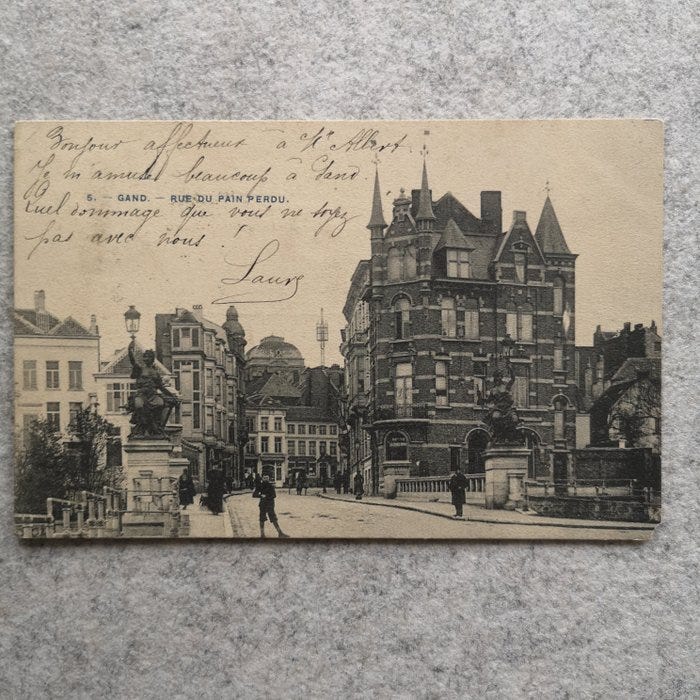 Bonjour affectueux à Mr Albert
Je m'amuse beaucoup à Gand.
5. – GAND. – RUE DU PAIN PERDU.
Quel dommage que vous ne soyez
pas avec nous !
Laure